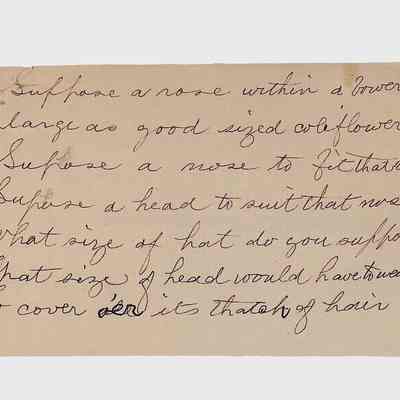 Suppose a rose within a bower
large as good sized coleflower
Supose a nose to fit that
Supose a head to suit that nos
What size of hat do you suppo
What size of head would have to wea
cover o'er its thatch of hair